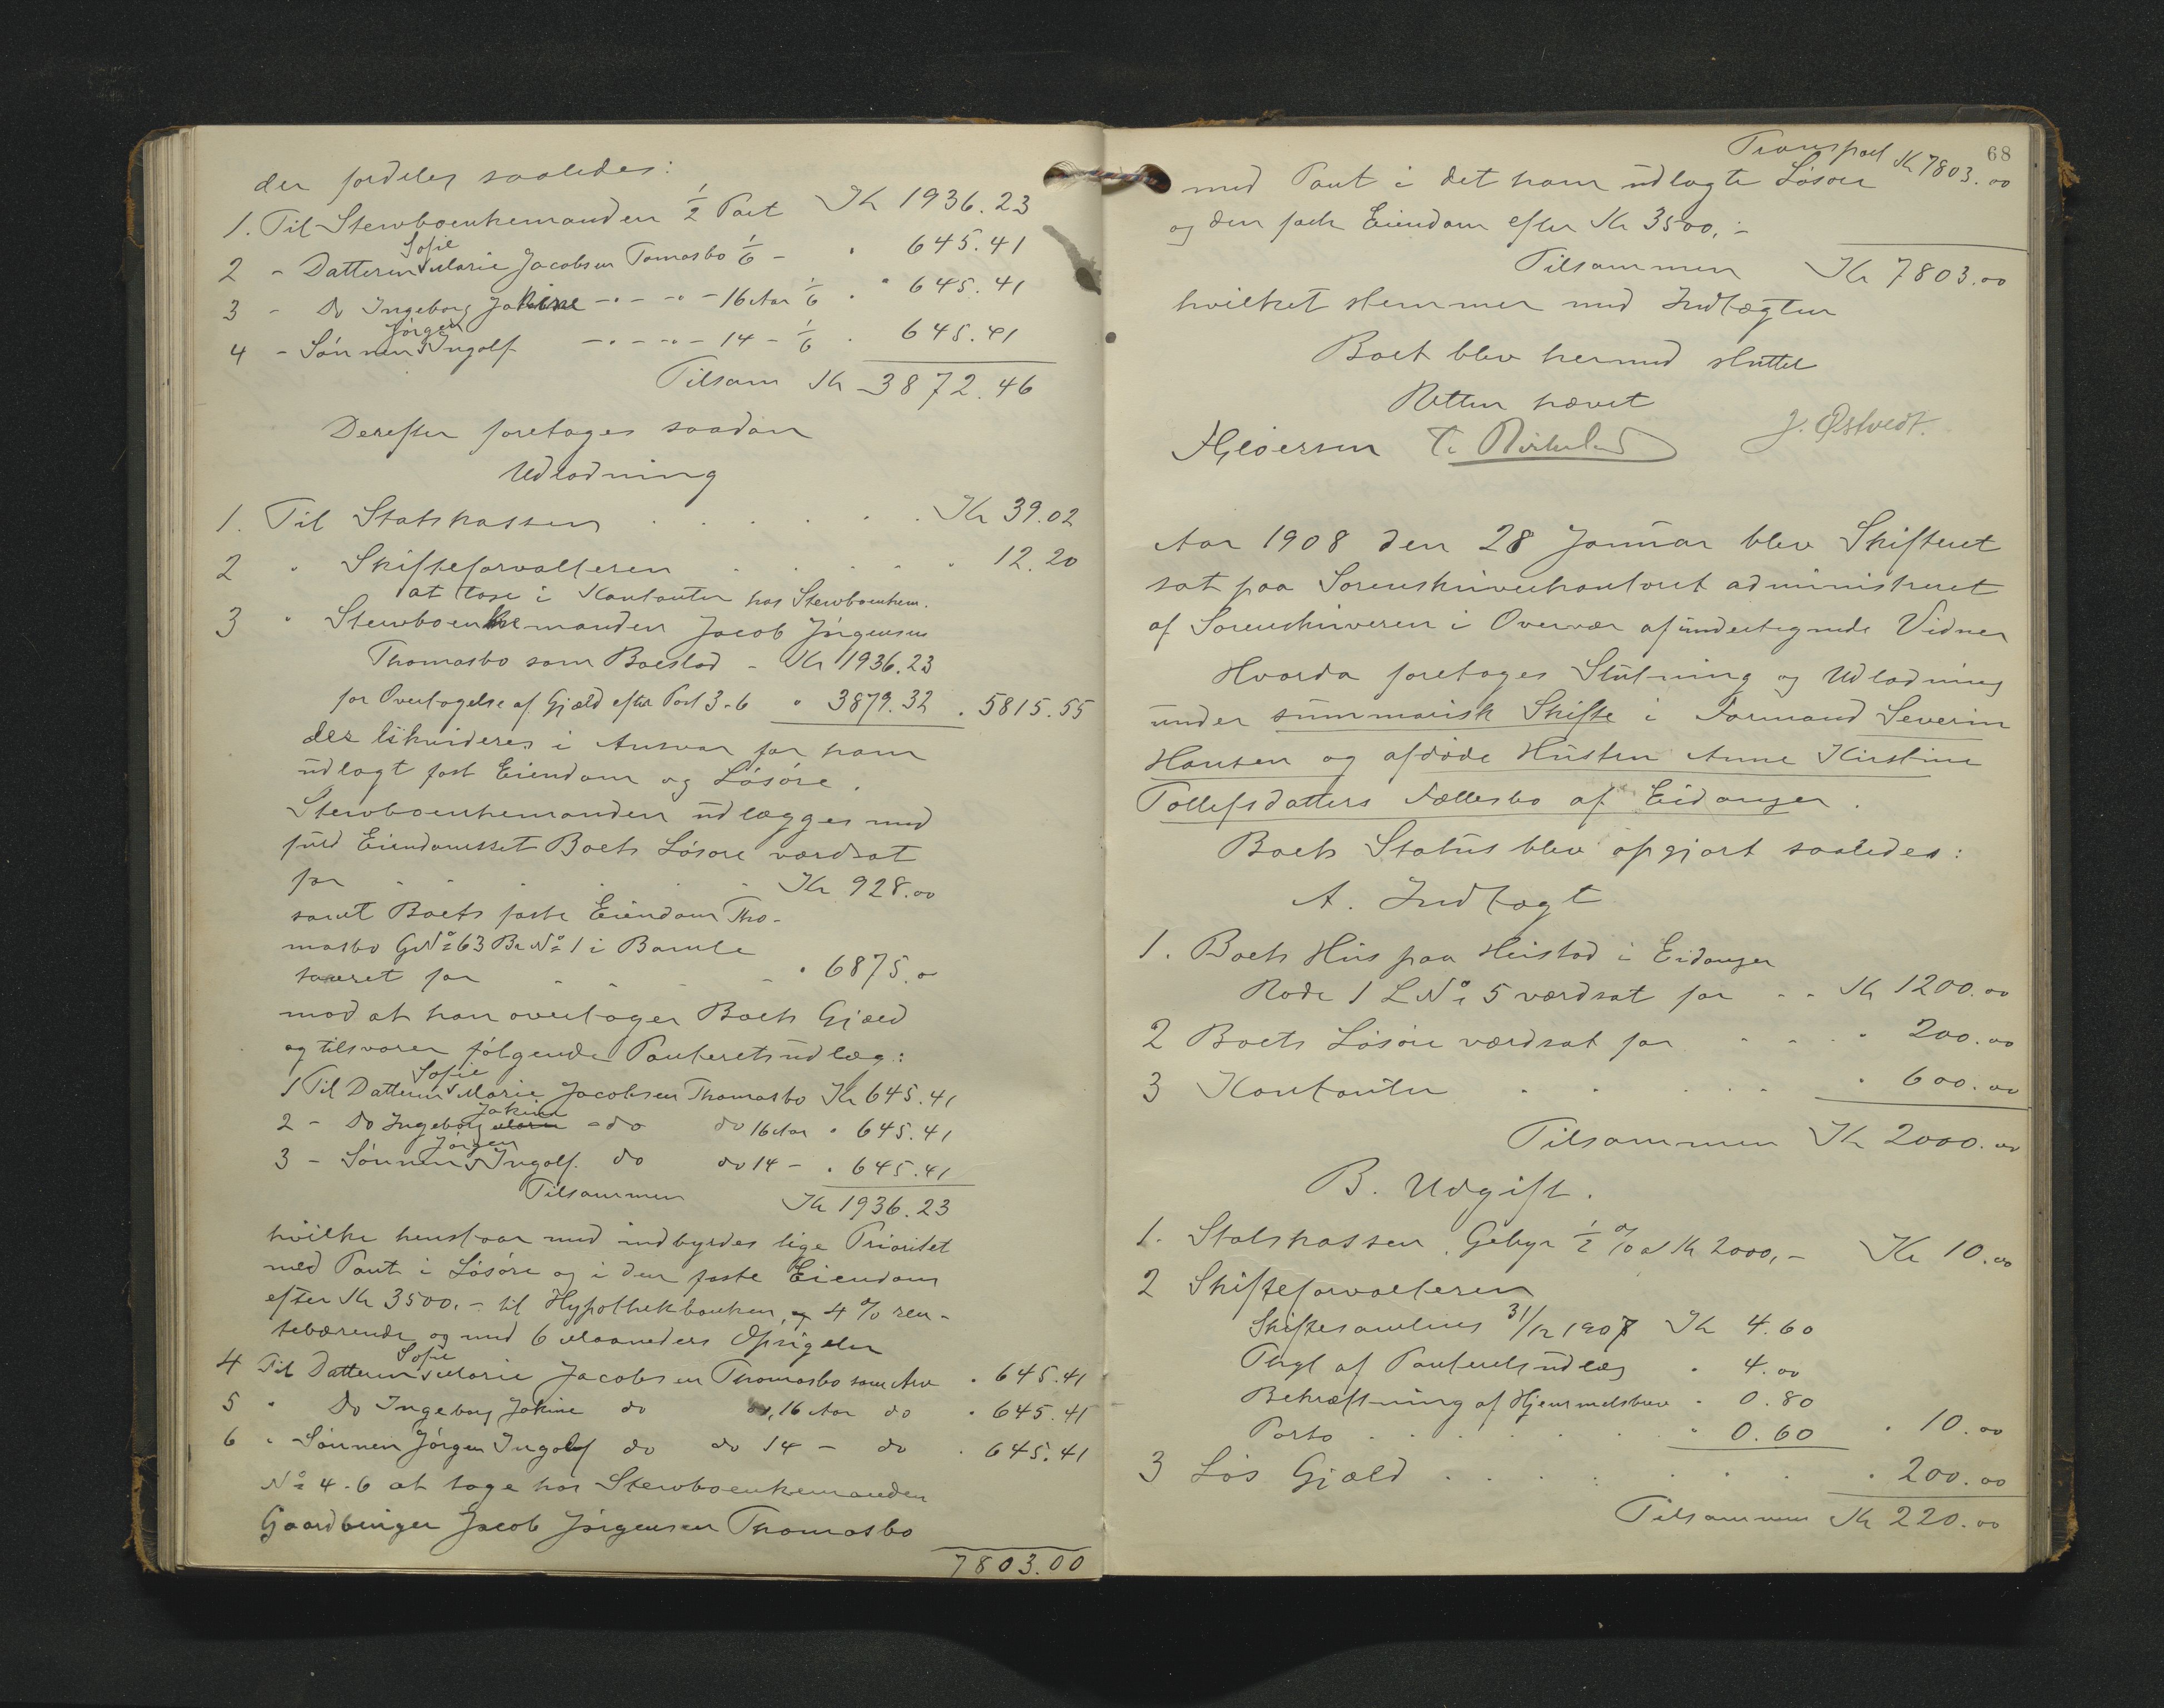 der fordeles saaledes:
1. Til Stervboenkemanden 1/2 Part Kr 1936.23
2 - Datteren Sofie Marie Jacobsen Tomasbo 1/6 - " 645.41
3 - Do Ingeborg Jakine -"- -"- 16 Aar 1/6 " " 645.41
4 - Sønnen Jørgen Ingolf -"- -"- 14 - 1/6 " 645.41
Tilsam Kr 3872.46
Derefter foretages saadan
Udlodning
1. Til Statskassen Kr 39.02
2 " Skifteforvalteren " 12.20
at tage i Kontanter hos Stervboenkem.
3 " Stervboenkemanden Jacob Jørgensen
Thomasbo som Boeslod - Kr 1936.23
for Overtagelse af Gjæld efter Post 3-6 " 3879.32 " 5815.55
der likvideres i Ansvar for ham
udlagt fast Eiendom og Løsøre.
Stervboenkemanden udlægges med
fuld Eiendomsret Boets Løsøre værdsat
for Kr 928.00
samt Boets faste Eiendom Tho-
masbo GNo 63 BrNo 1 i Bamle
taxeret for " 6875.00
mod at han overtager Boets Gjæld
og tilsvarer følgende Panteretsudlæg:
1 Til Datteren Sofie Marie Jacobsen Thomasbo Kr 645.41
2 - Do Ingeborg Marie Jakine - do do 16 Aar " 645.41
3 - Sønnen Jørgen Ingolf do do 14 - " 645.41
Tilsammen Kr 1936.23
hvilke henstaar med indbyrdes lige Prioritet
med Pant i Løsøre og i den faste Eiendom
efter Kr 3500.- til Hypothekbanken, 4 % ren-
tebærende og med 6 Maaneders Opsigelse
4 Til Datteren Sofie Marie Jacobsen Thomasbo som Arv " 645.41
5 " Do Ingeborg Jakine do do, 16 Aar do " 645.41
6 " Sønnen Jørgen Ingolf do do 14 - do " 645.41
No 4-6 at tage hos Stervboenkemanden
Gaardbruger Jacob Jørgensen Thomasbo
7803.00
68
Transport Kr 7803.00
med Pant i det ham udlagte Løsøre
og den faste Eiendom efter Kr 3500,-
Tilsammen Kr 7803.00
hvilket stemmer med Indtægten
Boet blev hermed sluttet
Retten hævet
J. Østvedt.
Aar 1908 den 28 Januar blev Skifteret
sat paa Sorenskriverkontoret administreret
af Sorenskriveren i Overvær af undertegnede Vidner
Hvorda foretages Slutning og Udlodning
under summarisk Skifte i Formand Severin
Hansen og afdøde Hustru Anne Kirstine
Tollefsdatters Fællesbo af Eidanger.
Boets Status blev opgjort saaledes:
A. Indtægt
1. Boets Hus paa Heistad i Eidanger
Rode 1 LNo 5 værdsat for - - Kr 1200.00
2 Boets Løsøre værdsat for " 200.00
3 Kontanter " 600.00
Tilsammen Kr 2000.00
B. Udgift.
1. Statskassen, Gebyr 1/2 % af Kr 2000,- Kr 10.00
2 Skifteforvalteren
Skiftesamling 31/12 1907 Kr 4.60
Tingl af Panteretsudlæg " 4.00
Bekræftning af Hjemmelsbrev " 0.80
Porto " 0.60 " 10.00
3 Løs Gjæld " 200.00
Tilsammen Kr 220.00